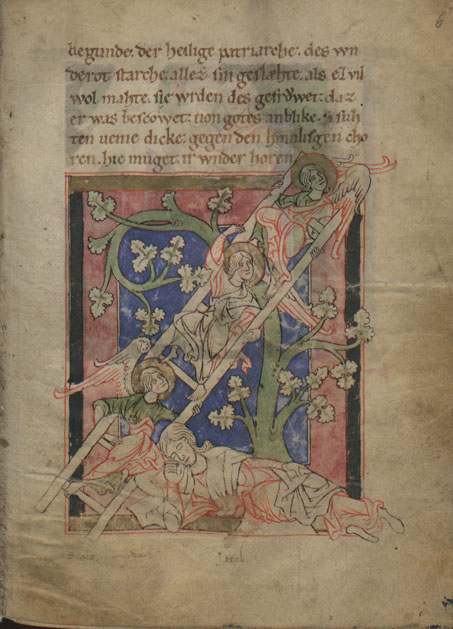 6
begunde. der heilige patriarche. des wn
derot starche. allez sin geslæhte. als er vil
wol mahte. sie wrden des gefrowet: daz
er was bescowet: uon gotes anblike. si suh
ten dicke: gegen den himilisgen cho
ren. hie muget ir wnder horen
Jacob